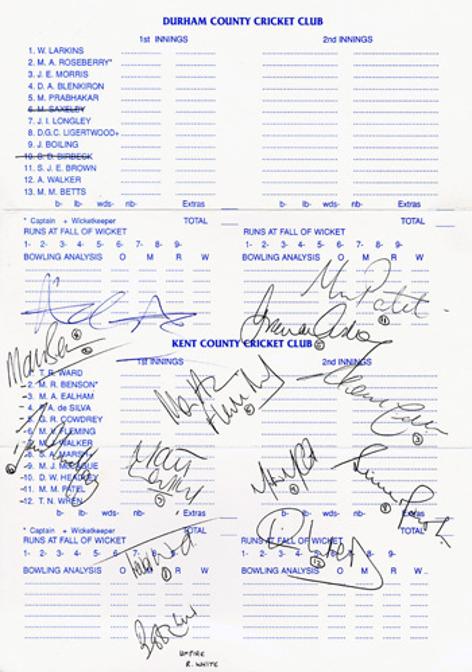 DURHAM COUNTY CRICKET CLUB
1st INNINGS 2nd INNINGS
1. W. LARKINS
2. M. A. ROSEBERRY*
3. J. E. MORRIS
4. D. A. BLENKIRON
5. M. PRABHAKAR
6. M. SAXELBY
7. J. I. LONGLEY
8. D.G.C. LIGERTWOOD+
9. J. BOILING
10. S. D. BIRBECK
11. S. J. E. BROWN
12. A. WALKER
13. M. M. BETTS
b- lb- wds- nb- Extras b- lb- wds- nb- Extras
* Captain + Wicketkeeper TOTAL TOTAL
RUNS AT FALL OF WICKET RUNS AT FALL OF WICKET
1- 2- 3- 4- 5- 6- 7- 8- 9- 1- 2- 3- 4- 5- 6- 7- 8- 9-
BOWLING ANALYSIS O M R W BOWLING ANALYSIS O M R W
KENT COUNTY CRICKET CLUB
1st INNINGS 2nd INNINGS
1. T. R. WARD
2. M. R. BENSON*
3. M. A. EALHAM
4. P. A. de SILVA
5. G. R. COWDREY
6. M. V. FLEMING
7. M. J. WALKER
8. S. A. MARSH+
9. M. J. McCAGUE
10. D. W. HEADLEY
11. M. M. PATEL
12. T. N. WREN
b- lb- wds- nb- Extras b- lb- wds- nb- Extras
* Captain + Wicketkeeper TOTAL TOTAL
RUNS AT FALL OF WICKET RUNS AT FALL OF WICKET
1- 2- 3- 4- 5- 6- 7- 8- 9- 1- 2- 3- 4- 5- 6- 7- 8- 9-
BOWLING ANALYSIS O M R W BOWLING ANALYSIS O M R W
UMPIRE
R. WHITE